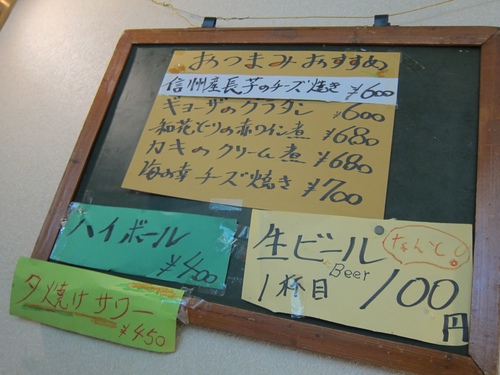 おつまみおすすめ
信州産長芋のチーズ焼き ¥600
ギョーザのグラタン ¥600
和花どりの赤ワイン煮 ¥680
カキのクリーム煮 ¥680
海の幸チーズ焼き ¥700
ハイボール
¥400
夕焼けサワー
¥450
生ビール
なんと!
Beer
1杯目 100円